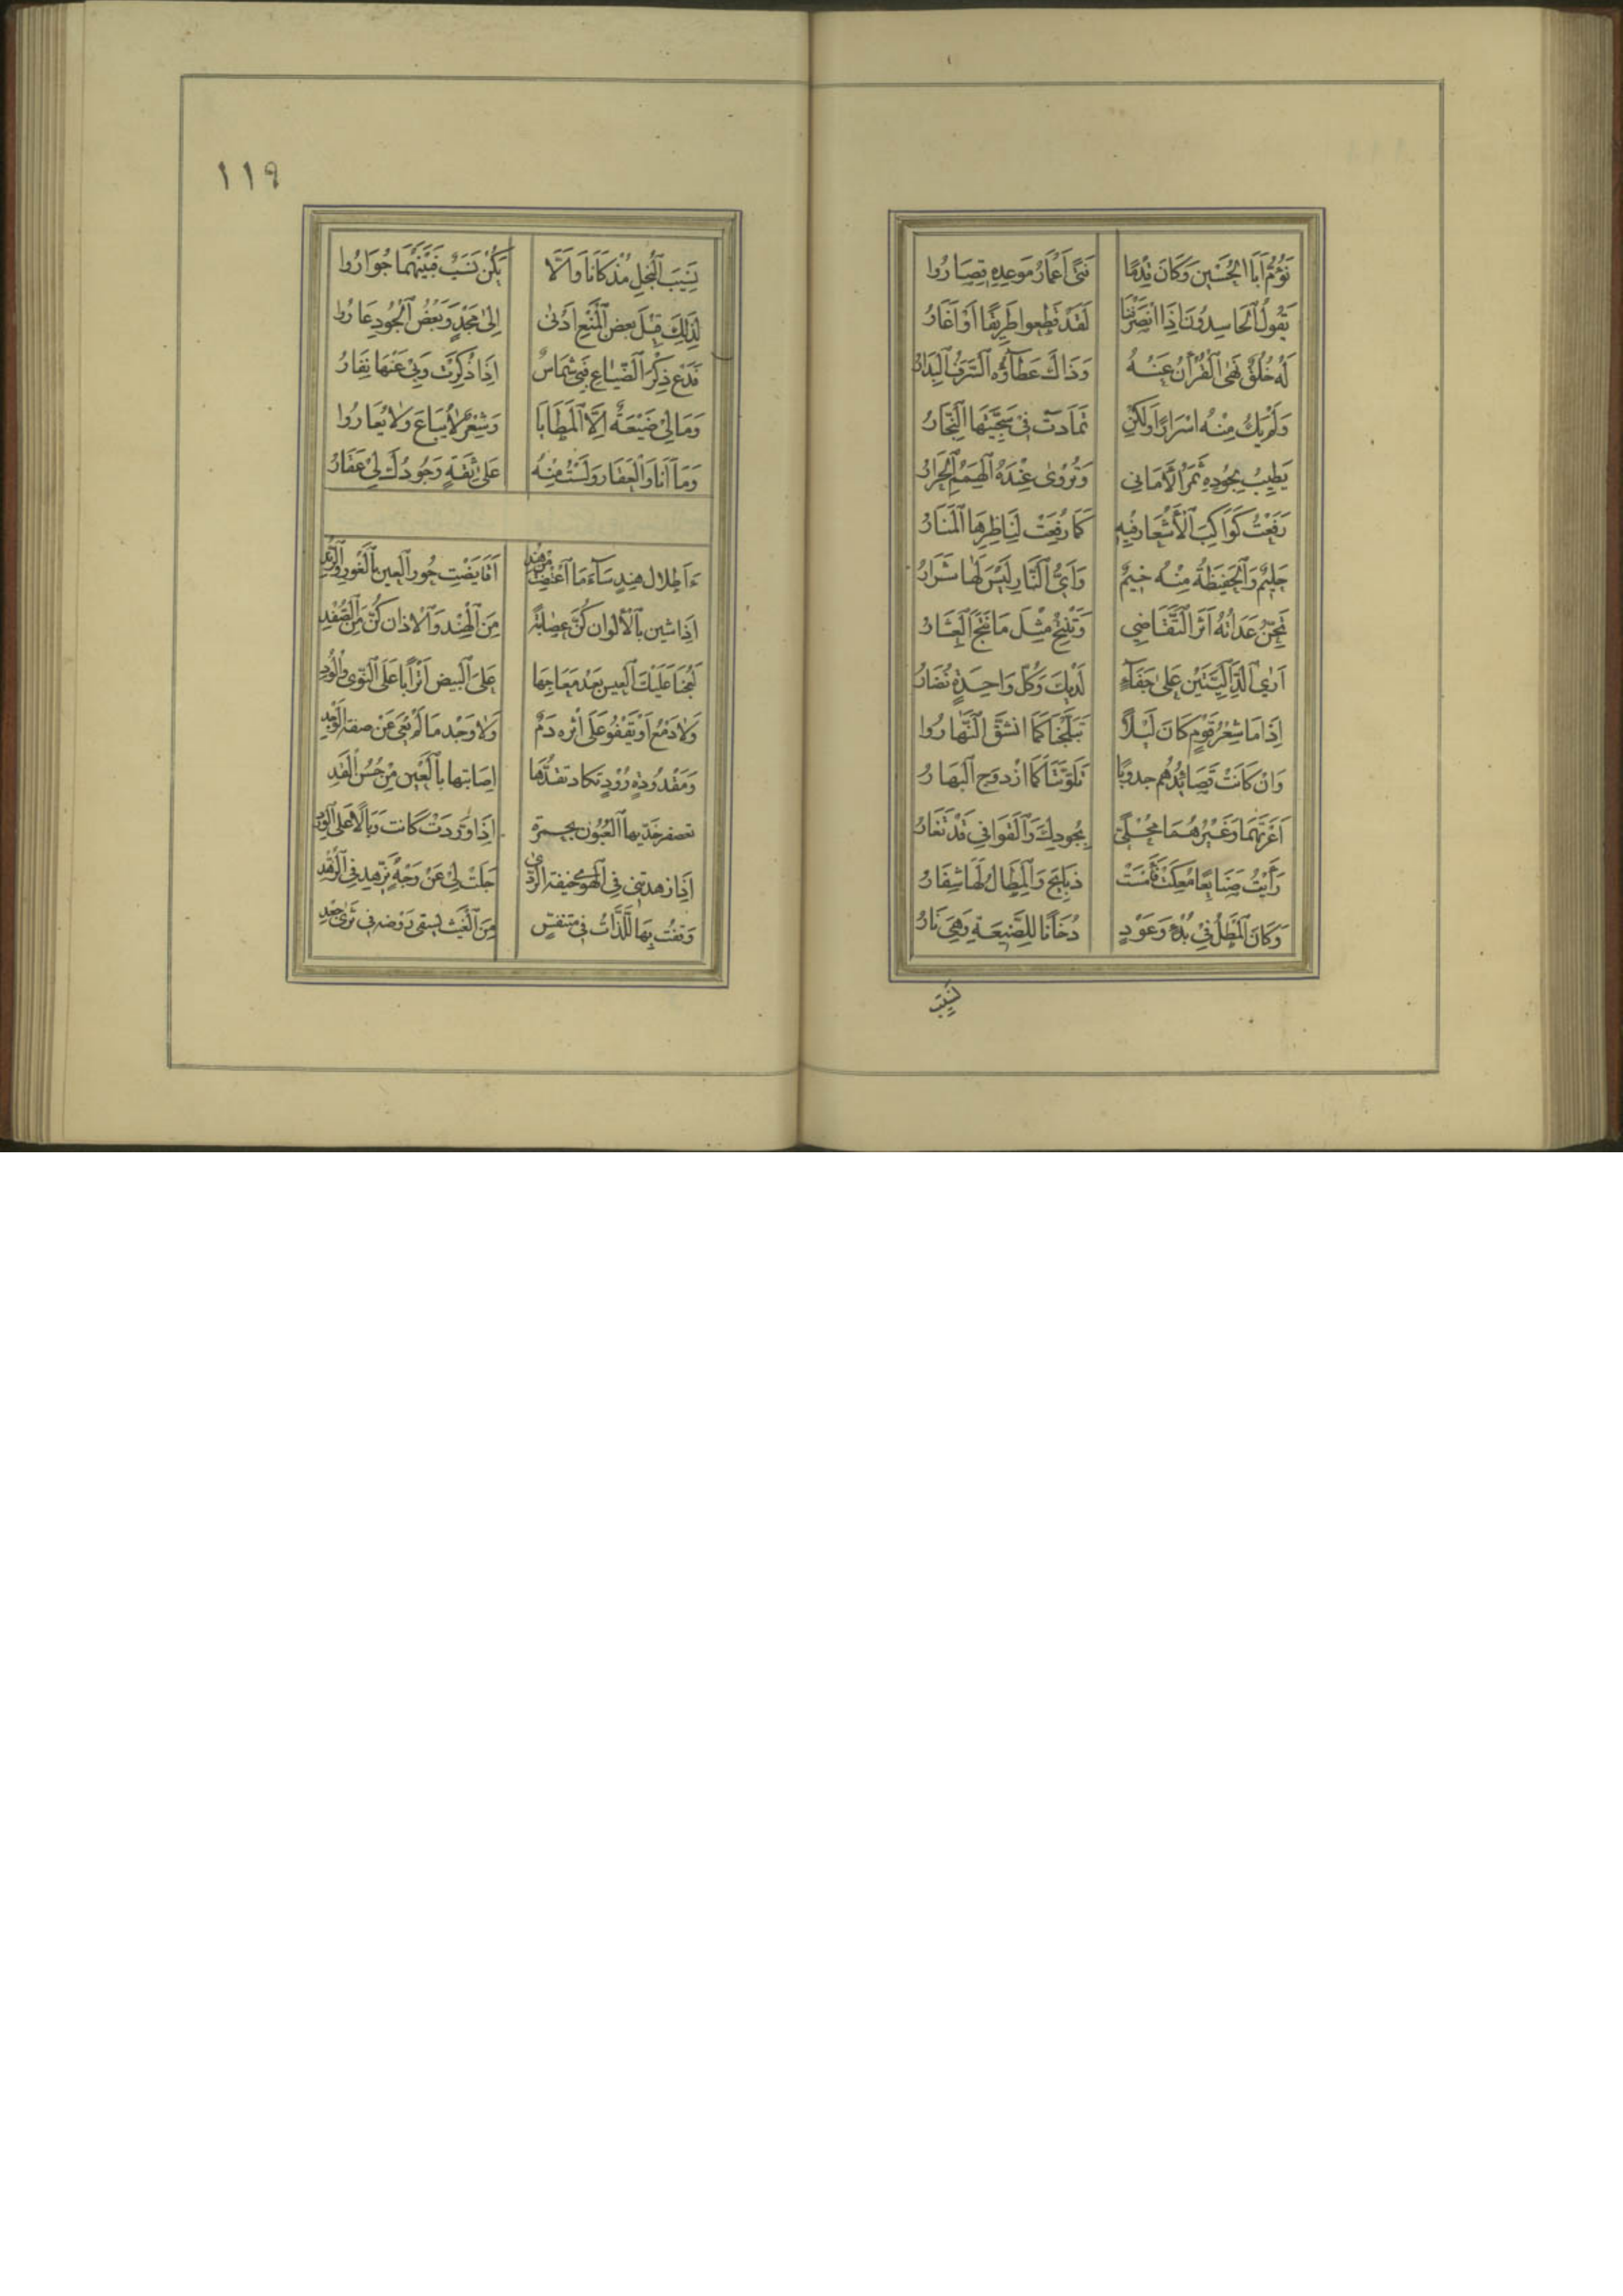 نَؤُمُّ أَبَا الحُسَيْنِ وَكَانَ قِدْمًا فَتًى أَعْمَارُ مَوعِدِهِ قِصَارُوا
يَقُولُ الحَاسِدُونَ إِذَا انْصَرَفْنَا لَقَدْ قَطَعُوا طَرِيقًا أَوْ أَغَارُ
لَهُ خُلُقٌ نَهَى القُرْآنُ عَنْهُ وَذَاكَ عَطَاؤُهُ السَّرَفُ البِدَارُ
وَلَمْ يَكُ مِنْهُ اِسْرَارًا وَلَكِنْ تَمَادَتْ فِي سَجِيَّتِهَا النِّجَارُ
يَطِيبُ بِجُودِهِ ثَمَرُ الأَمَانِي وَتُرْوَى عِنْدَهُ الهِمَمُ الحِرَارُ
رَفَعْتُ كَوَاكِبَ الأَشْعَارِ فِيهِ كَمَا رُفِعَتْ لِنَاظِرِهَا المَنَارُ
حَلِيمٌ وَالحَفِيظَةُ مِنْهُ خِيمٌ وَأَيُّ النَّارِ لَيْسَ لَهَا شَرَارُ
تَحِنُّ عِدَاتُهُ أَثَرَ التَّقَاضِي وَتُنْتِجُ مِثْلَ مَا نُتِجَ العِشَارُ
أَرَى الدَّالِيَّتَيْنِ عَلَى جَفَاءٍ لَدَيْكَ وَكُلُّ وَاحِدَةٍ نُضَارُ
إِذَا مَا شِعْرُ قَوْمٍ كَانَ لَيْلًا تَبَلَّجَتَا كَمَا انْشَقَّ النَّهَارُوا
وَإِنْ كَانَتْ قَصَائِدُهُمْ جدوبًا تَلَوَّنَتَا كَمَا ازْدَوَجَ البَهَارُ
أَغَرْتَهُمَا وَغَيْرُهُمَا مُحَلًّى بِجُودِكَ وَالقَوَافِي قَدْ تَغَارُ
رَأَيْتُ صَنَايِعًا مُعِكَتْ فَأَمْسَتْ ذَبَايِحَ وَالمِطَالُ لَهَا شِفَارُ
وَكَانَ المَطْلُ فِي بَدْءٍ وَعَوْدٍ دُخَانًا لِلصَّنِيعَةِ وَهِيَ نَارُ
نَسِيبَ
١١٩
نَسِيبَ البُخْلِ مُذْ كَانَا وَأَلَّا يَكُنْ نَسَبٌ فَبَيْنَهُمَا جِوَارُوا
لِذَلِكَ قِيلَ بَعْضُ المَنْعِ أَدْنَى إِلَى مَجْدٍ وَبَعْضُ الجُودِ عَارُوا
فَدَعْ ذِكْرَ الضِّيَاعِ فَبِي شِمَاسٌ إِذَا ذُكِرَتْ وَبِي عَنْهَا نِفَارُ
وَمَا لِي ضَيْعَةٌ إِلَّا المَطَايَا وَشِعْرٌ لَا يُبَاعُ وَلَا يُعَارُوا
وَمَا أَنَا وَالعَقَارَ وَلَسْتُ مِنْهُ عَلَى ثِقَةٍ وَجُودُكَ لِي عَقَارُ
ءَأَطْلَالَ هِنْدٍ سَاءَ مَا اعْتَضْتِ مِنْ هِنْدِ أَقَايَضْتِ حُورَ العِينِ بِالعُورِ وَالرُّبْدِ
إِذَا شِئْنَ بِالأَلْوَانِ كُنَّ عِصَابَةً مِنَ الهِنْدِ وَالآذَانِ كُنَّ مِنَ الصُّغْدِ
لَعُجْنَا عَلَيْكَ العِيسَ بَعْدَ مَعَاجِهَا عَلَى البِيضِ أَتْرَابًا عَلَى النُّؤْيِ وَالوَدِّ
وَلَا دَمْعَ أَوْ يَقْفُو عَلَى أَثْرِهِ دَمٌ وَلَا وَجْدَ مَا لَمْ يَعْيَ عَنْ صِفَةِ الوَجْدِ
وَمَقْدُودَةٍ رُؤْدٍ تَكَادُ تَقُدُّهَا إِصَابَتُهَا بِالعَيْنِ مِنْ حُسْنِ القَدِّ
تعصفر خَدَّيْهَا العُيُونُ بِحُمْرَةٍ إِذَا وَرَدَتْ كَانَتْ وَبَالًا عَلَى الوَرْدِ
إِذَا زَهَّدَتْنِي فِي الهَوَى خِيفَةُ الرَّدَى جَلَتْ لِيَ عَنْ وَجْهٍ يُزَهِّدُ فِي الزُّهْدِ
وَقَفْتُ بِهَا اللَّذَّاتِ فِي مُتَنَفَّسٍ مِنَ الغَيْثِ يَسْقِي رَوْضَةً فِي ثَرًى جَعْدِ